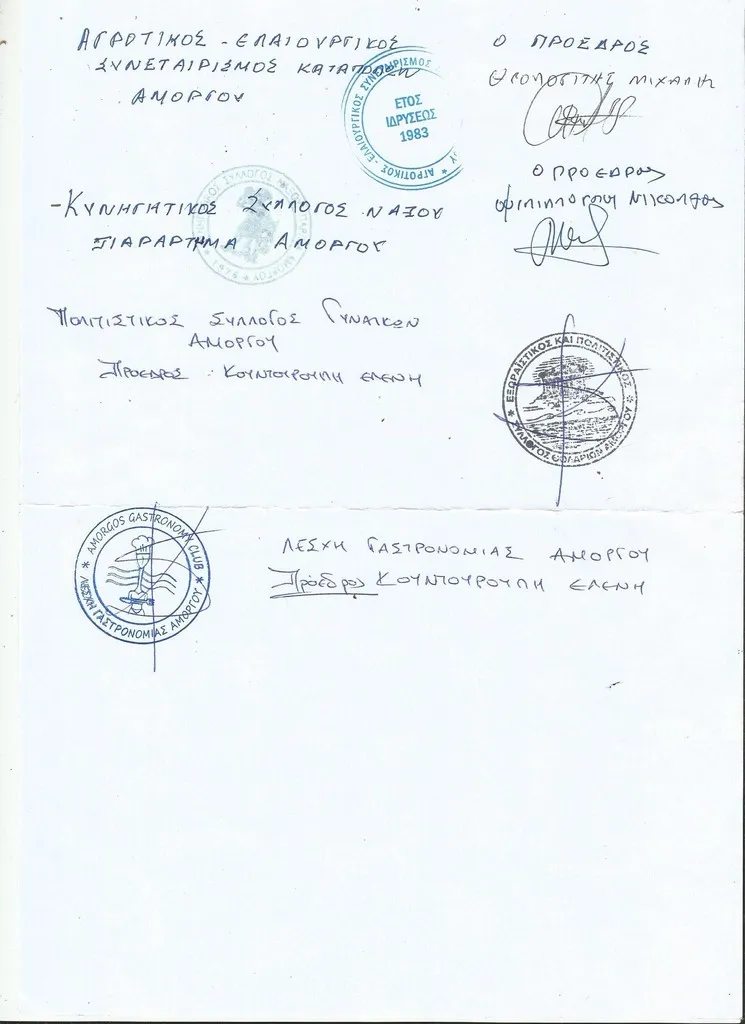 ΑΓΡΟΤΙΚΟΣ - ΕΛΑΙΟΥΡΓΙΚΟΣ
ΣΥΝΕΤΑΙΡΙΣΜΟΣ ΚΑΤΑΠΟΛΩΝ
ΑΜΟΡΓΟΥ
Ο ΠΡΟΕΔΡΟΣ
ΜΙΧΑΛΗ
ΑΓΡΟΤΙΚΟΣ - ΕΛΑΙΟΥΡΓΙΚΟΣ ΣΥΝΕΤΑΙΡΙΣΜΟΣ
ΕΤΟΣ
ΙΔΡΥΣΕΩΣ
1983
Ο ΠΡΟΕΔΡΟΣ
ΝΙΚΟΛΑΟΣ
- ΚΥΝΗΓΗΤΙΚΟΣ ΣΥΛΛΟΓΟΣ ΝΑΞΟΥ
ΠΑΡΑΡΤΗΜΑ ΑΜΟΡΓΟΥ
ΣΥΛΛΟΓΟΣ
ΑΜΟΡΓΟΥ
ΠΟΛΙΤΙΣΤΙΚΟΣ ΣΥΛΛΟΓΟΣ ΓΥΝΑΙΚΩΝ
ΑΜΟΡΓΟΥ
ΠΡΟΕΔΡΟΣ : ΚΟΥΝΤΟΥΡΟΥΠΗ ΕΛΕΝΗ
ΕΞΩΡΑΙΣΤΙΚΟΣ ΚΑΙ ΠΟΛΙΤΙΣΤΙΚΟΣ
ΣΥΛΛΟΓΟΣ ΘΟΛΑΡΙΩΝ ΑΜΟΡΓΟΥ
AMORGOS GASTRONOMY CLUB
ΛΕΣΧΗ ΓΑΣΤΡΟΝΟΜΙΑΣ ΑΜΟΡΓΟΥ
ΛΕΣΧΗ ΓΑΣΤΡΟΝΟΜΙΑΣ ΑΜΟΡΓΟΥ
Πρόεδρος ΚΟΥΝΤΟΥΡΟΥΠΗ ΕΛΕΝΗ